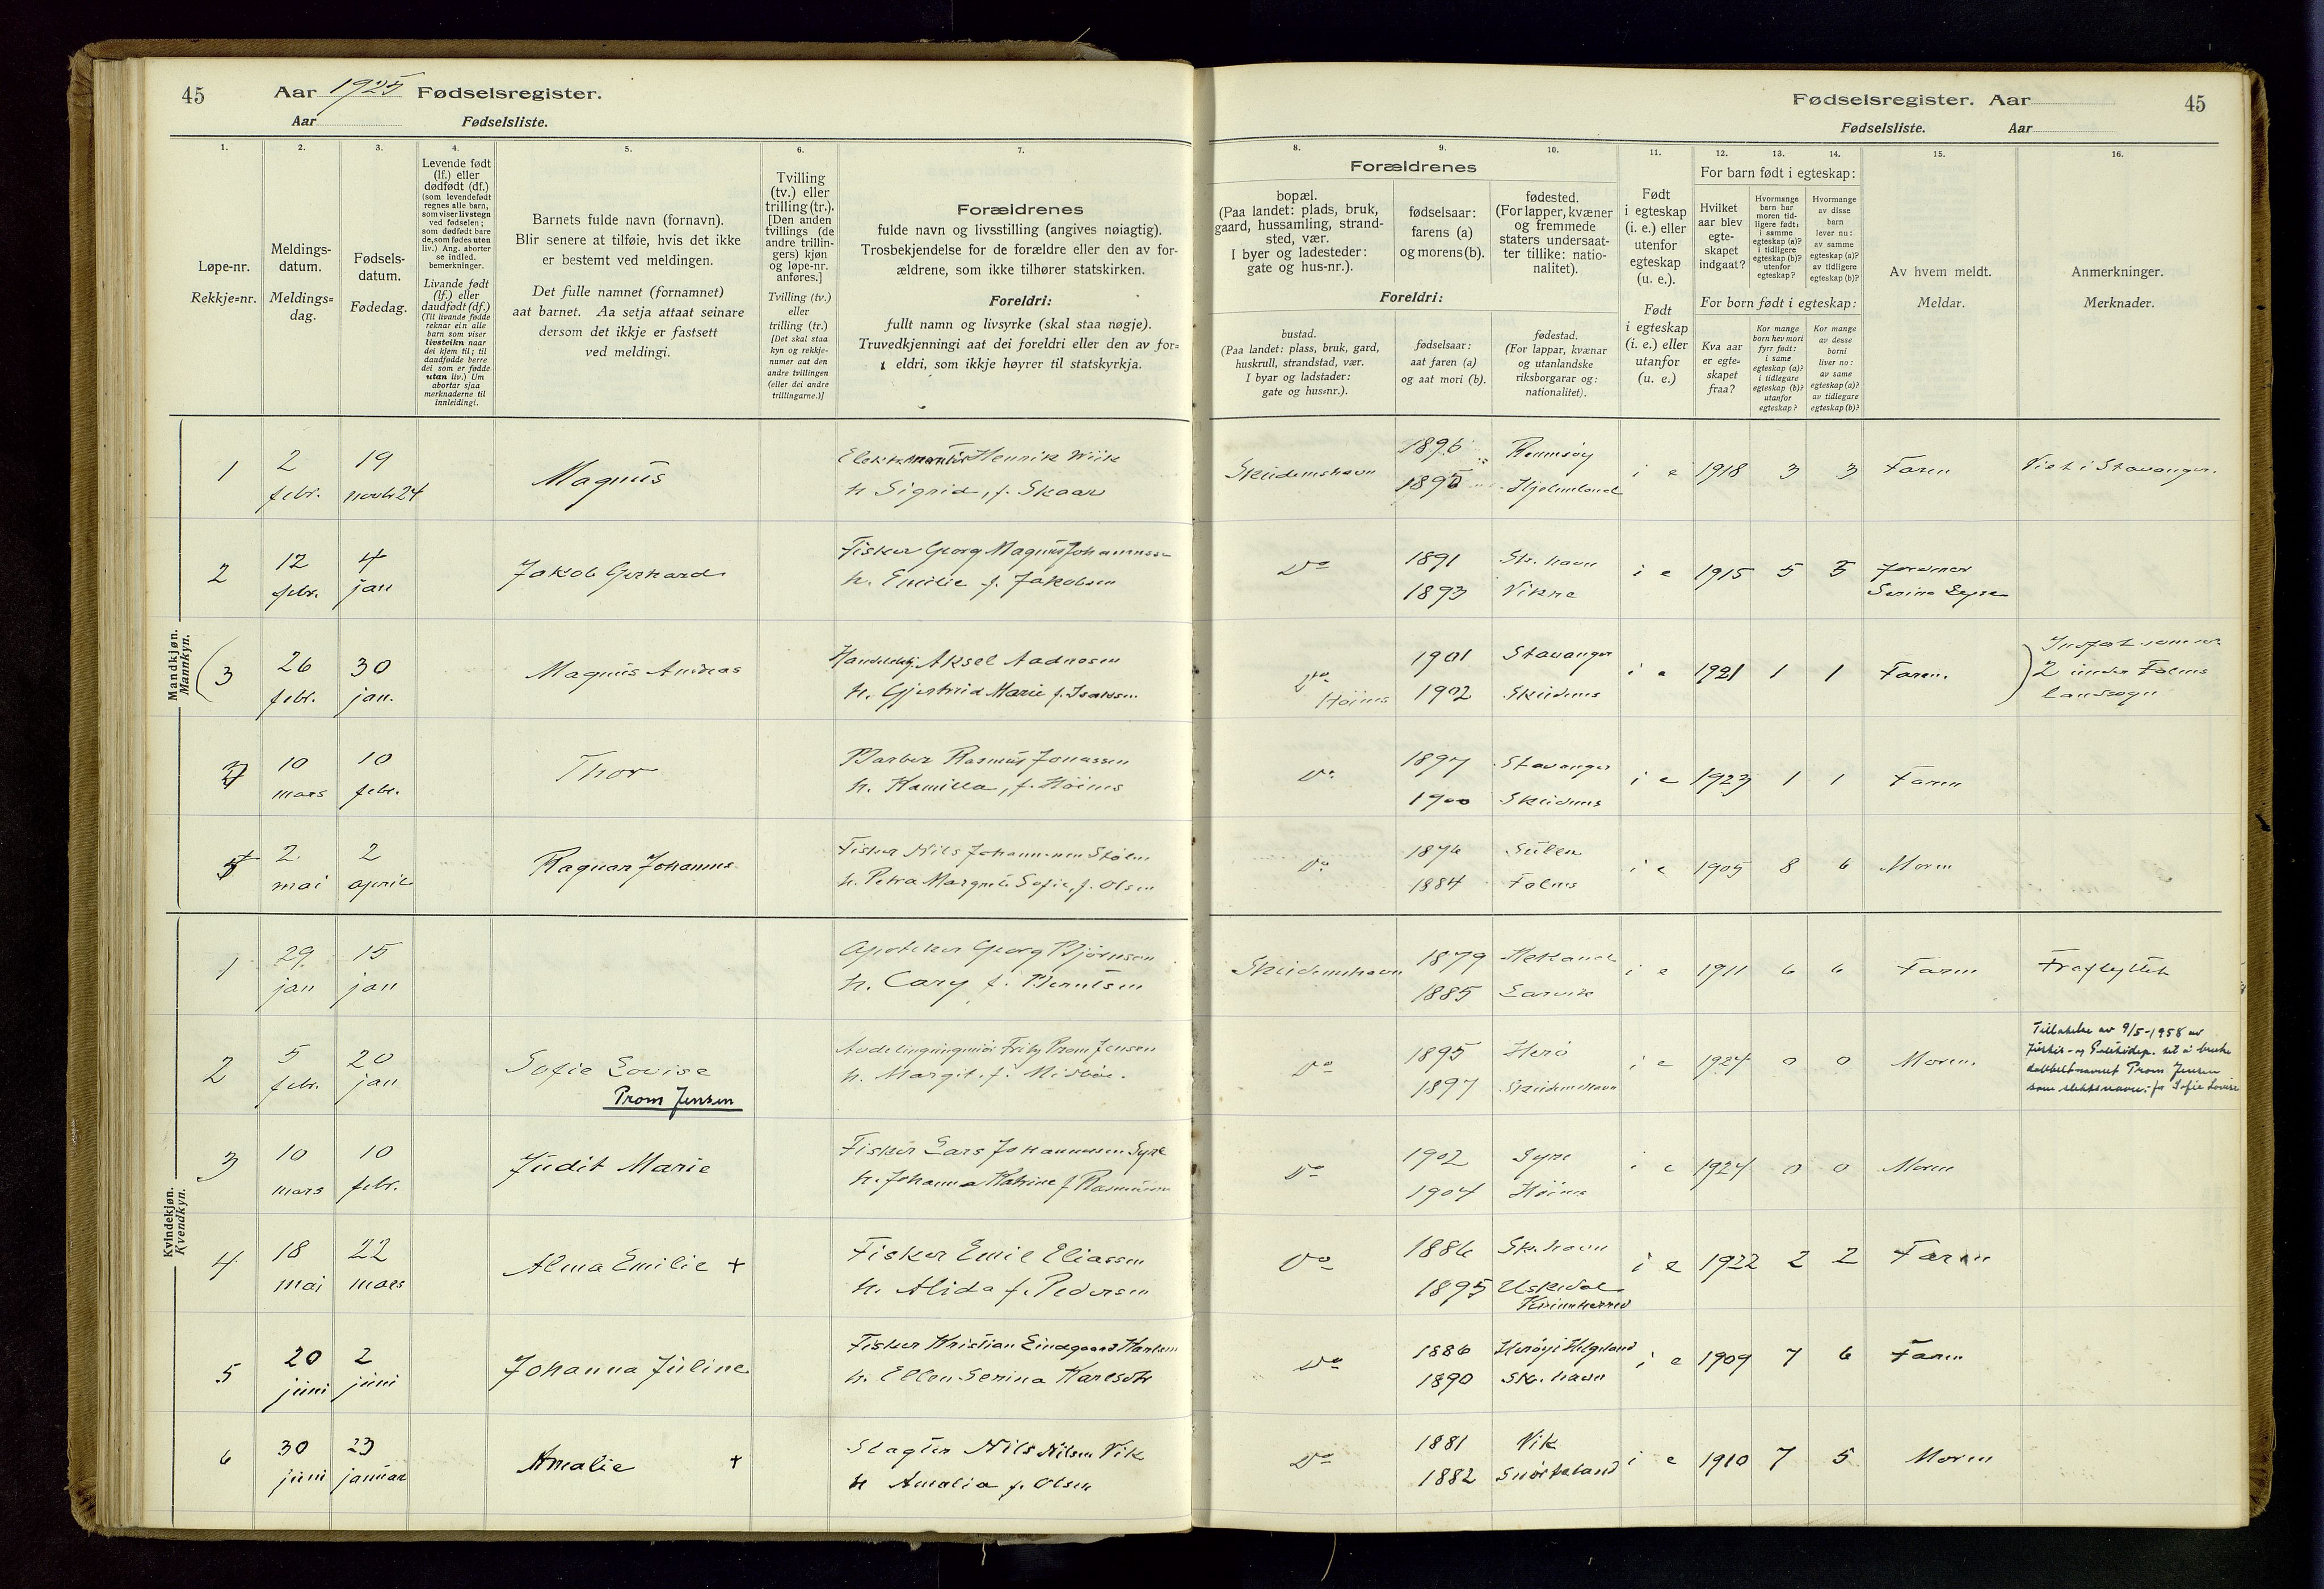 45
Aar 1925 Fødselsregister.
Aar Fødselsliste.
1.
2.
3.
4.
5.
6.
7.
Løpe-nr.
Rekkje=nr.
Meldings-
datum.
Meldings=
dag.
Fødsels-
datum.
Fødedag.
Levende født
(lf.) eller
dødfødt (df.)
(som levendefødt
regnes alle barn,
som viser livstegn
ved fødselen;
som dødfødt bare
de, som fødes uten
liv.) Ang. aborter
se indled.
bemerkninger.
Livande født
(lf.) eller
daudfødt (df.)
(Til livande fødde
reknar ein alle
barn som viser
livsteikn naar
dei kjem til; til
daudfødde berre
dei som er fødde
utan liv.) Um
abortar sjaa
merknaderne til
innleidingi.
Barnets fulde navn (fornavn).
Blir senere at tilføie, hvis det ikke
er bestemt ved meldingen.
Det fulle namnet (fornamnet)
aat barnet. Aa setja attaat seinare
dersom det ikkje er fastsett
ved meldingi.
Tvilling
(tv.) eller
trilling (tr.).
[Den anden
tvillings (de
andre trillin-
gers) kjøn
og løpe-nr.
anføres.]
Tvilling (tv.)
eller
trilling (tr.)
[Det skal staa
kyn og rekkje-
numer aat den
andre tvillingen
(eller dei andre
trillingarne.)]
Forældrenes
fulde navn og livsstilling (angives nøiagtig).
Trosbekjendelse for de forældre eller den av for-
ældrene, som ikke tilhører statskirken.
Foreldri:
fullt namn og livsyrke (skal staa nøgje).
Truvedkjenningi aat dei foreldri eller den av for=
eldri, som ikkje høyrer til statskyrkja.
Mandkjøn.
Mannkyn.
1
2 febr.
19 novb 24
Magnus
Elektr.montør Henrik Wiik
h. Sigrid, f. Skaar
2
12 febr.
4 jan
Jakob Gerhard
Fisker Georg Magnus Johannessen
h. Emilie f. Jakobsen
(3
26 febr.
30 jan.
Magnus Andreas
Aksel Aadnesen
h. Gjertrud Marie f. Isaksen
10 mars
10 febr.
Thor
Barber Rasmus Jonassen
h. Kamilla, f. Høines
2 mai
2 april
Ragnar Johannes
Fisker Nils Johannessen Stølen
h. Petra Margrete Sofie, f. Olsen
Kvindekjøn.
Kvendkyn.
1
29 jan
15 jan
Apoteker Georg Bjørnsen
h. Cary f. Berntsen
2
5 febr.
20 jan
Sofie Lovise
Prom Jensen
Fritz Prom Jensen
h. Margit, f. Midbøe.
3
10 mars
10 febr.
Judit Marie
Fisker Lars Johannessen Syre
h. Johanna Katrine f. Rasmussen
4
18 mai
22 mars
Alma Emilie +
Fisker Emil Eliassen
h. Alida f. Pedersen
5
20 juni
2 juni
Johanna Juline
Fisker Kristian Karlsen
h. Ellen Serina
6
30 juni
23 januar
Amalie +
Slagter Nils Nilsen Vik
h Amalia f. Olsen
Fødselsregister. Aar
45
Fødselsliste. Aar
8.
9.
10.
11.
12.
13.
14.
15.
16.
Forældrenes
bopæl.
(Paa landet: plads, bruk,
gaard, hussamling, strand-
sted, vær.
I byer og ladesteder:
gate og hus-nr.).
fødselsaar:
farens (a)
og morens (b).
fødested.
(For lapper, kvæner
og fremmede
staters undersaat-
ter tillike: natio-
nalitet).
Foreldri:
bustad.
(Paa landet: plass, bruk, gard,
huskrull, strandstad, vær.
I byar og ladstader:
gate og hus=nr.).
fødselsaar:
aat faren (a)
og aat mori (b).
fødestad.
(For lappar, kvænar
og utanlandske
riksborgarar og:
nationalitet).
Født
i egteskap
(i. e.) eller
utenfor
egteskap
(u. e.).
Født
i egteskap
(i. e.) eller
utanfor
(u. e.)
For barn født i egteskap:
Hvilket
aar blev
egte-
skapet
indgaat?
Hvormange
barn har
moren tid-
ligere født:
i samme
egteskap (a)?
i tidligere
egteskap (b)?
utenfor
egteskap?
Hvormange
av disse
barn
lever nu:
av samme
egteskap (a)?
av tidligere
egteskap (b)?
For born født i egteskap:
Kva aar
er egte=
skapet
fraa?
Kor mange
born hev mori
fyrr født:
i same
egteskap (a)?
i tidlegare
egteskap (b)?
utanfor
egteskap?
Kor mange
av desse
borni
liver no:
av same
egteskap (a)?
av tidlegare
egteskap (b)?
Av hvem meldt.
Meldar.
Anmerkninger.
Merknader.
Skudeneshavn
1896 Rennesøy
Hjelmeland
i e 1918 3 3 Faren
Viet i Stavanger.
Do
1891 Sk. havn
1893 Vikne
i e 1915 5 5 Jordmor
Serine Syre
Do
Høines
1901 Stavanger
1902 Skudenes
i e 1921 1 1 Faren.
Indført som nr
2 under Falnes
landsogn
Do
1897 Stavanger
1900 Skudenes
i e 1923 1 1 Faren
Do
1876
1884 Falnes
i e 1905 8 6 Moren
Skudeneshavn
1879
1885 Larvik
i e 1911 6 6 Faren
Fraflyttet
Do
1895 Herø
1897 Skudeneshavn
i e 1924 0 0 Moren.
Tillatelse av 9/5-1958 av
Justis- og Politidep. til å bruke
dobbeltnavnet Prom Jensen
som slektsnavn for Sofie Lovise
Do
1902 Syre
1904 Høines
i e 1924 0 0 Moren
Do
1886 Sk. havn
1895 Uskedal
Kvinnherred
i e 1922 2 2 Faren
Do
1886 Herøy i Helgeland
1890 Sk. havn
i e 1909 7 6 Faren
Do
1881 Vik
1882
i e 1910 7 5 Moren